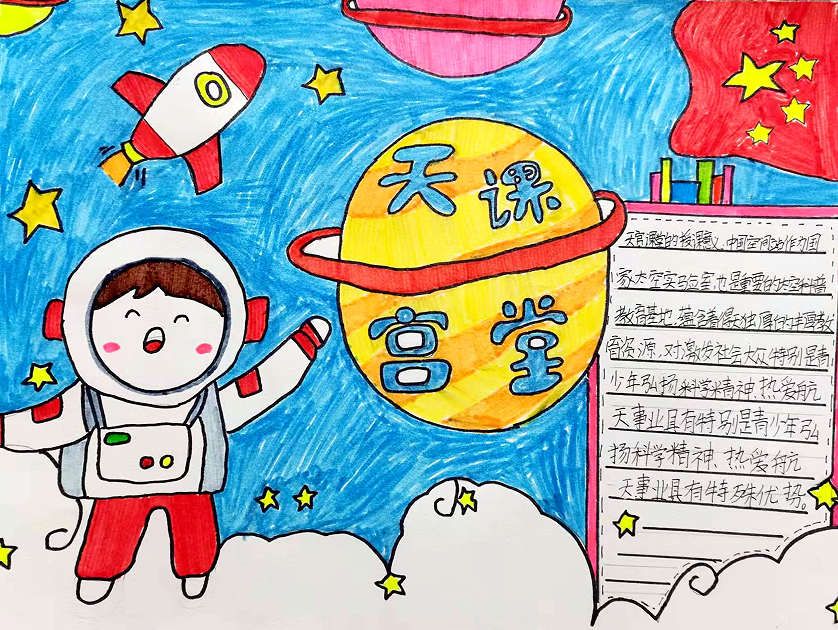 天宫
课堂
天宫课堂的授课意义、中国空间站作为国
家太空实验室也是重要的太空科普
教育基地,蕴含着得天独厚的丰富教
育资源,对激发社会大众特别是青
少年弘扬科学精神、热爱航
天事业具有特别是青少年弘
扬科学精神、热爱航
天事业具有特殊优势。